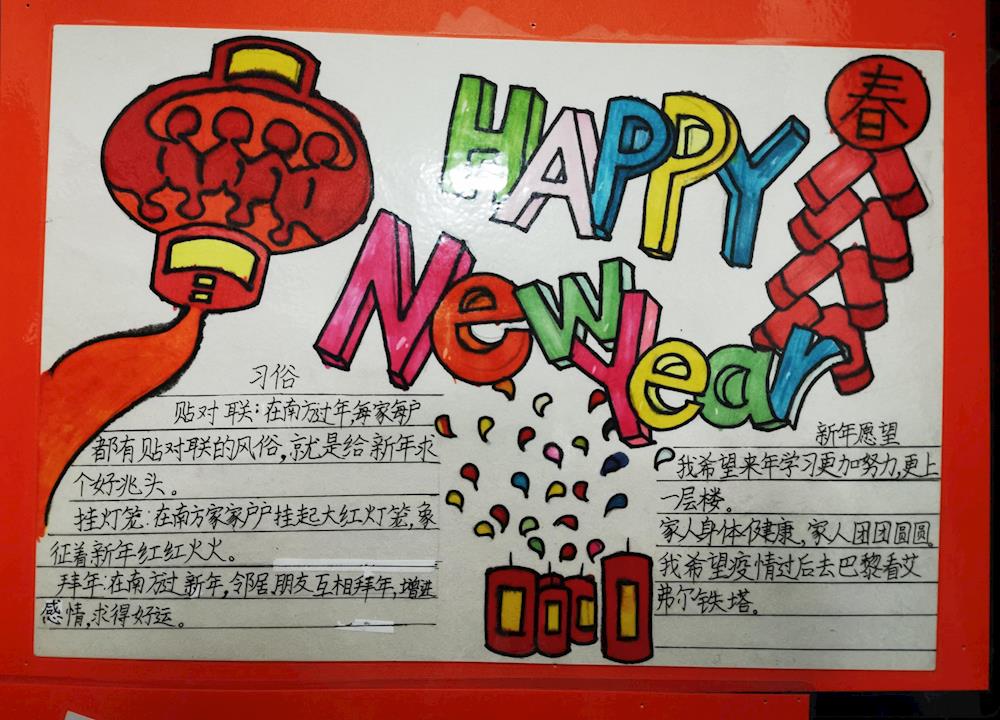 HAPPY
春
New Year
习俗
贴对联:在南方过年,每家每户
都有贴对联的风俗,就是给新年求
个好兆头。
挂灯笼:在南方家家户户挂起大红灯笼,象
征着新年红红火火。
拜年:在南方过新年,邻居,朋友互相拜年,增进
感情,求得好运。
新年愿望
我希望来年学习更加努力,更上
一层楼。
家人身体健康,家人团团圆圆。
我希望疫情过后去巴黎看艾
弗尔铁塔。